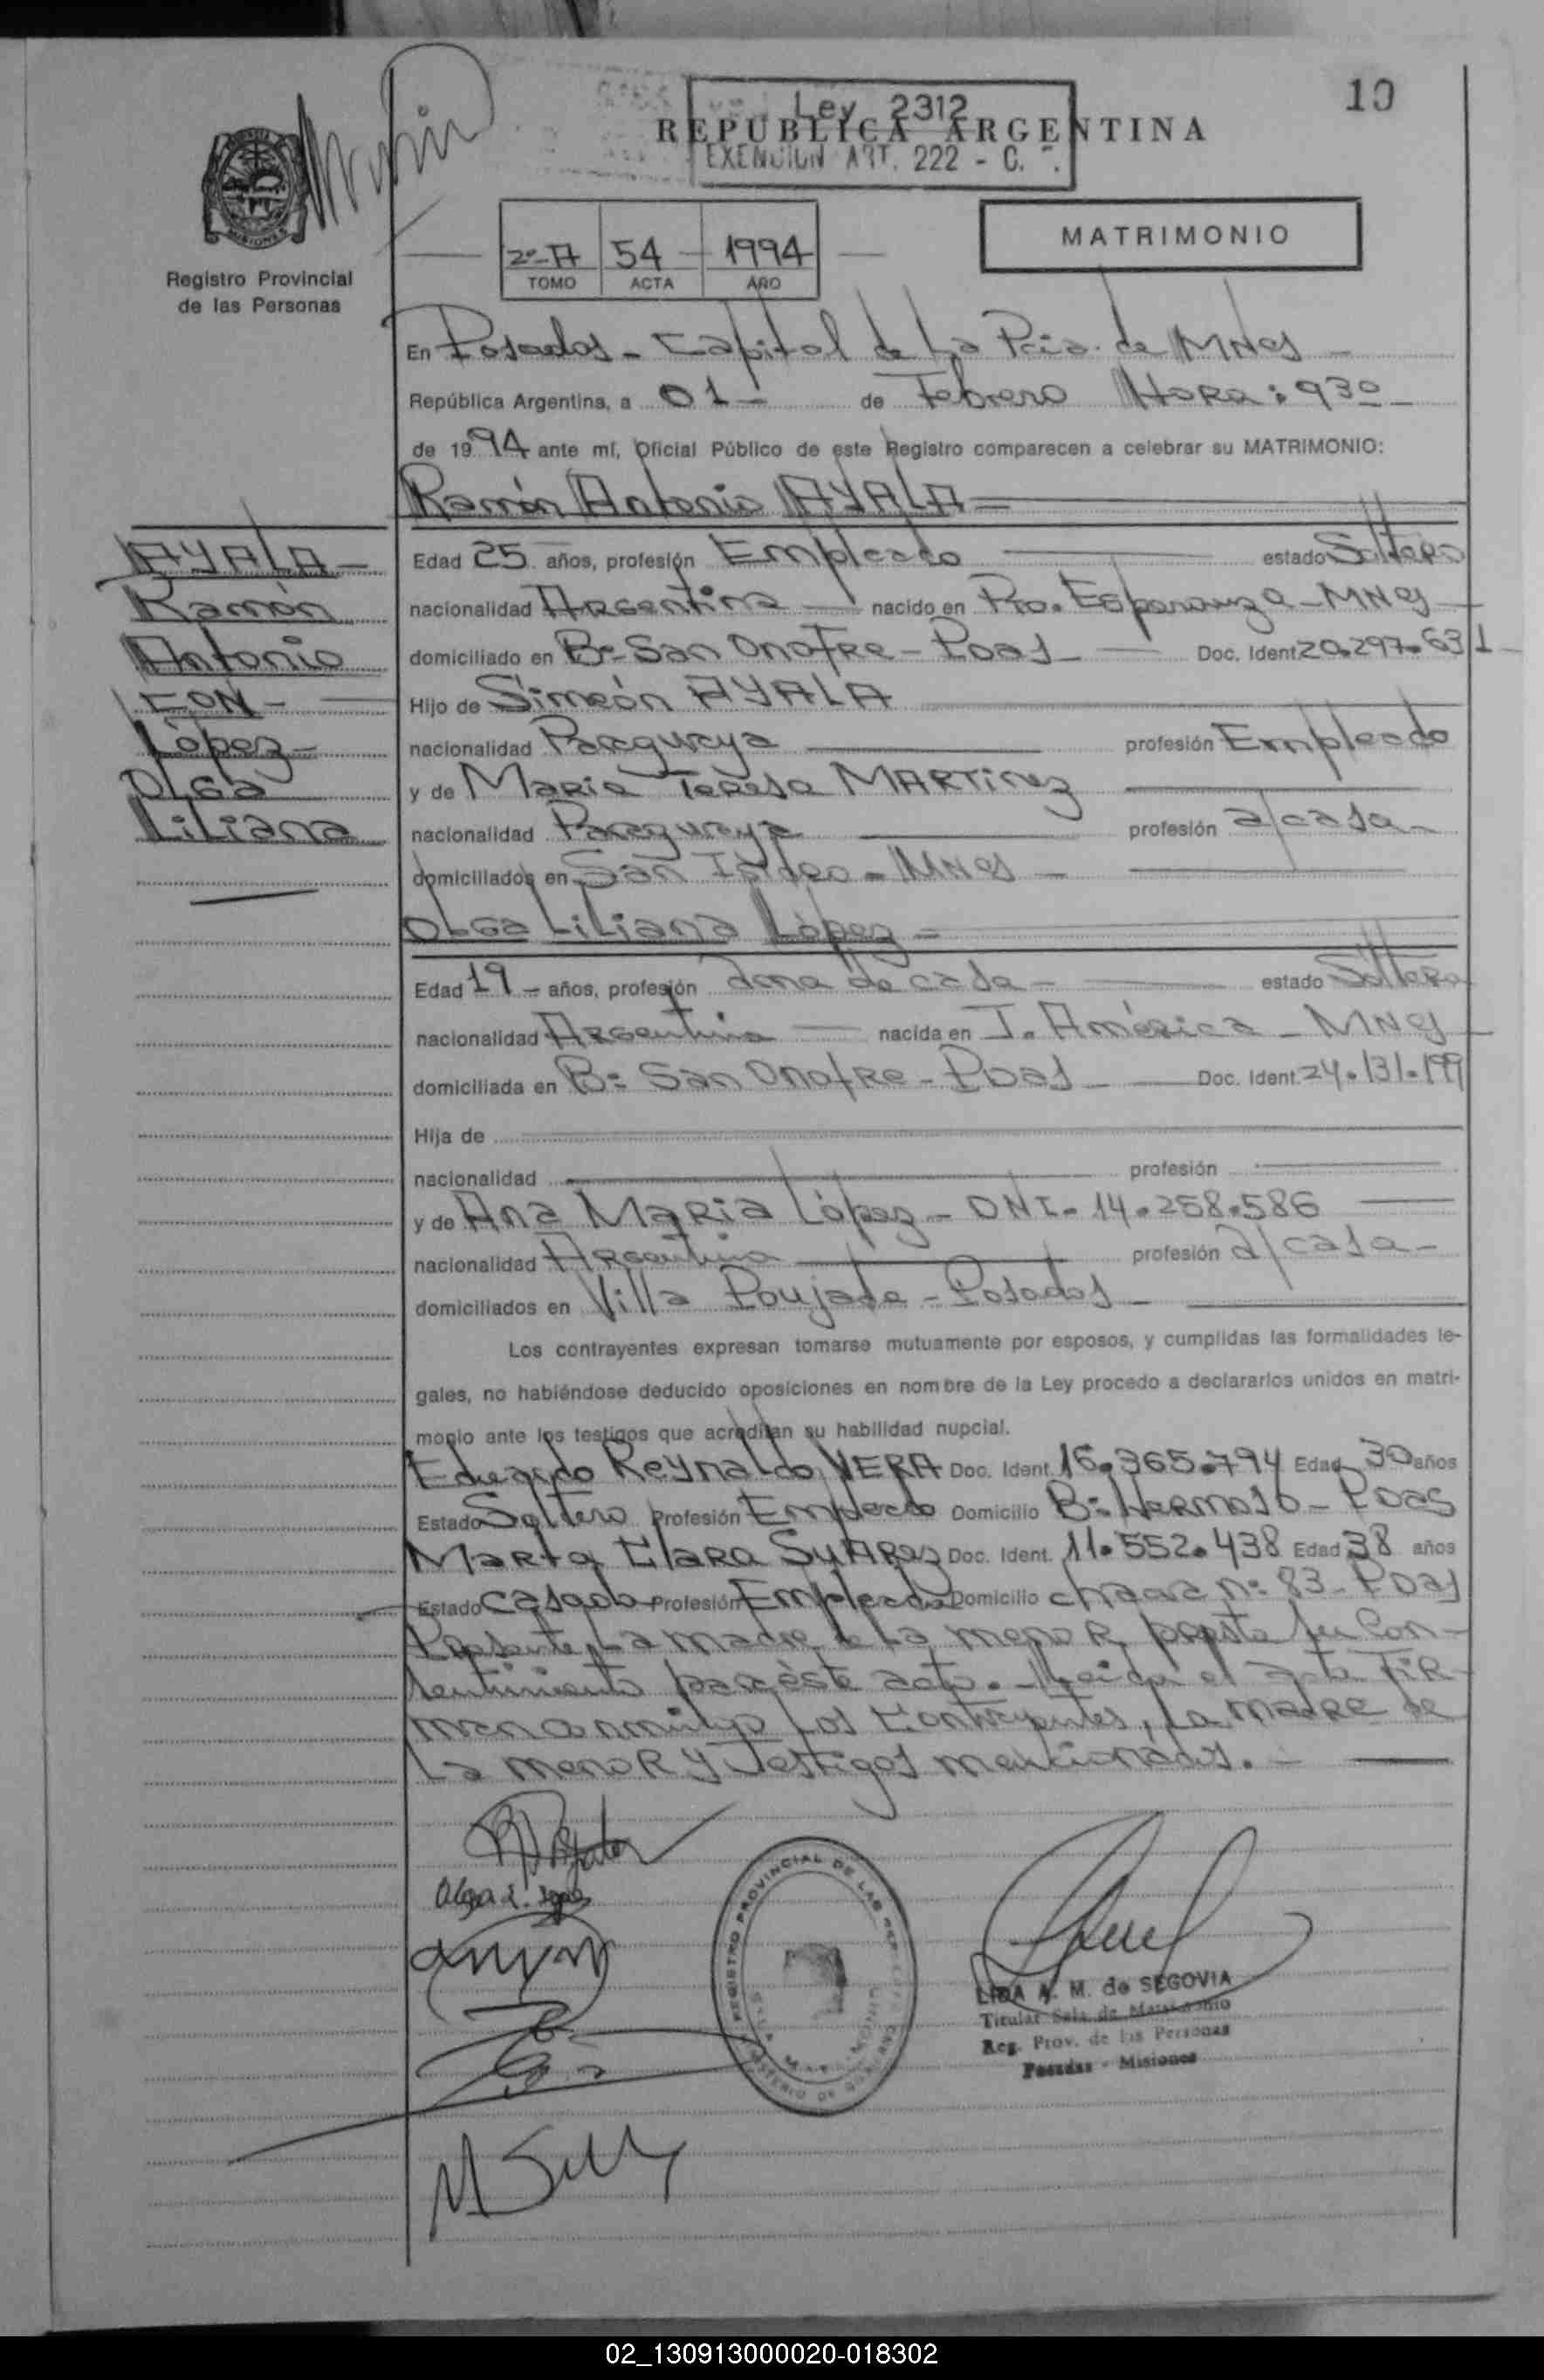 10
Ley 2312
REPUBLICA ARGENTINA
EXENCION ART. 222 - C.
MATRIMONIO
2º-A 54 1994
TOMO ACTA AÑO
Registro Provincial
de las Personas
En Posadas - Capital de La Pcia. de MNes -
República Argentina, a 01 - de Febrero Hora: 930 -
de 1994 ante mí, Oficial Público de este Registro comparecen a celebrar su MATRIMONIO:
Ramón Antonio AYALA =
AYALA -
Ramón
Antonio
CON -
López -
OLGa
Liliana
Edad 25 años, profesión Empleado estado Soltero
nacionalidad Argentina nacido en Pto. Esperanza - MNes
domiciliado en Bº San Onofre - Pdas - Doc. Ident 20.297.631
Hijo de Simeón AYALA
nacionalidad Paraguaya profesión Empleado
y de Maria Teresa MARTinez
nacionalidad Paraguaya profesión a/casa -
domiciliados en San Isidro - MNes -
OLGa Liliana López =
Edad 19 - años, profesión ama de casa - estado Soltera
nacionalidad Argentina nacida en J. América - MNes
domiciliada en Bº San Onofre - Pdas - Doc. Ident. 24.131.199
Hija de
nacionalidad profesión
y de Ana Maria López - DNI. 14.258.586
nacionalidad Argentina profesión a/casa -
domiciliados en Villa Poujade - Posadas -
Los contrayentes expresan tomarse mutuamente por esposos, y cumplidas las formalidades le-
gales, no habiéndose deducido oposiciones en nombre de la Ley procedo a declararlos unidos en matri-
monio ante los testigos que acreditan su habilidad nupcial.
Eduardo Reynaldo VERA Doc. Ident. 16.365.794 Edad 30 años
Estado Soltero Profesión Empleado Domicilio Bº Hermoso - Pdas
Marta Clara SuARez Doc. Ident. 11.552.438 Edad 38 años
Estado Casada Profesión Empleada Domicilio chacra nº 83 - Pdas
Presente La madre de La menor, presta su Con-
sentimiento para éste acto. - Leida el acta Fir-
man conmigo Los Contrayentes, La madre de
La menor y Testigos mencionados. -
Olga L. Lopez
REGISTRO PROVINCIAL DE LAS
LIDA A. M. de SEGOVIA
Titular Sala de Matrimonio
Reg. Prov. de las Personas
Posadas - Misiones
02_130913000020-018302